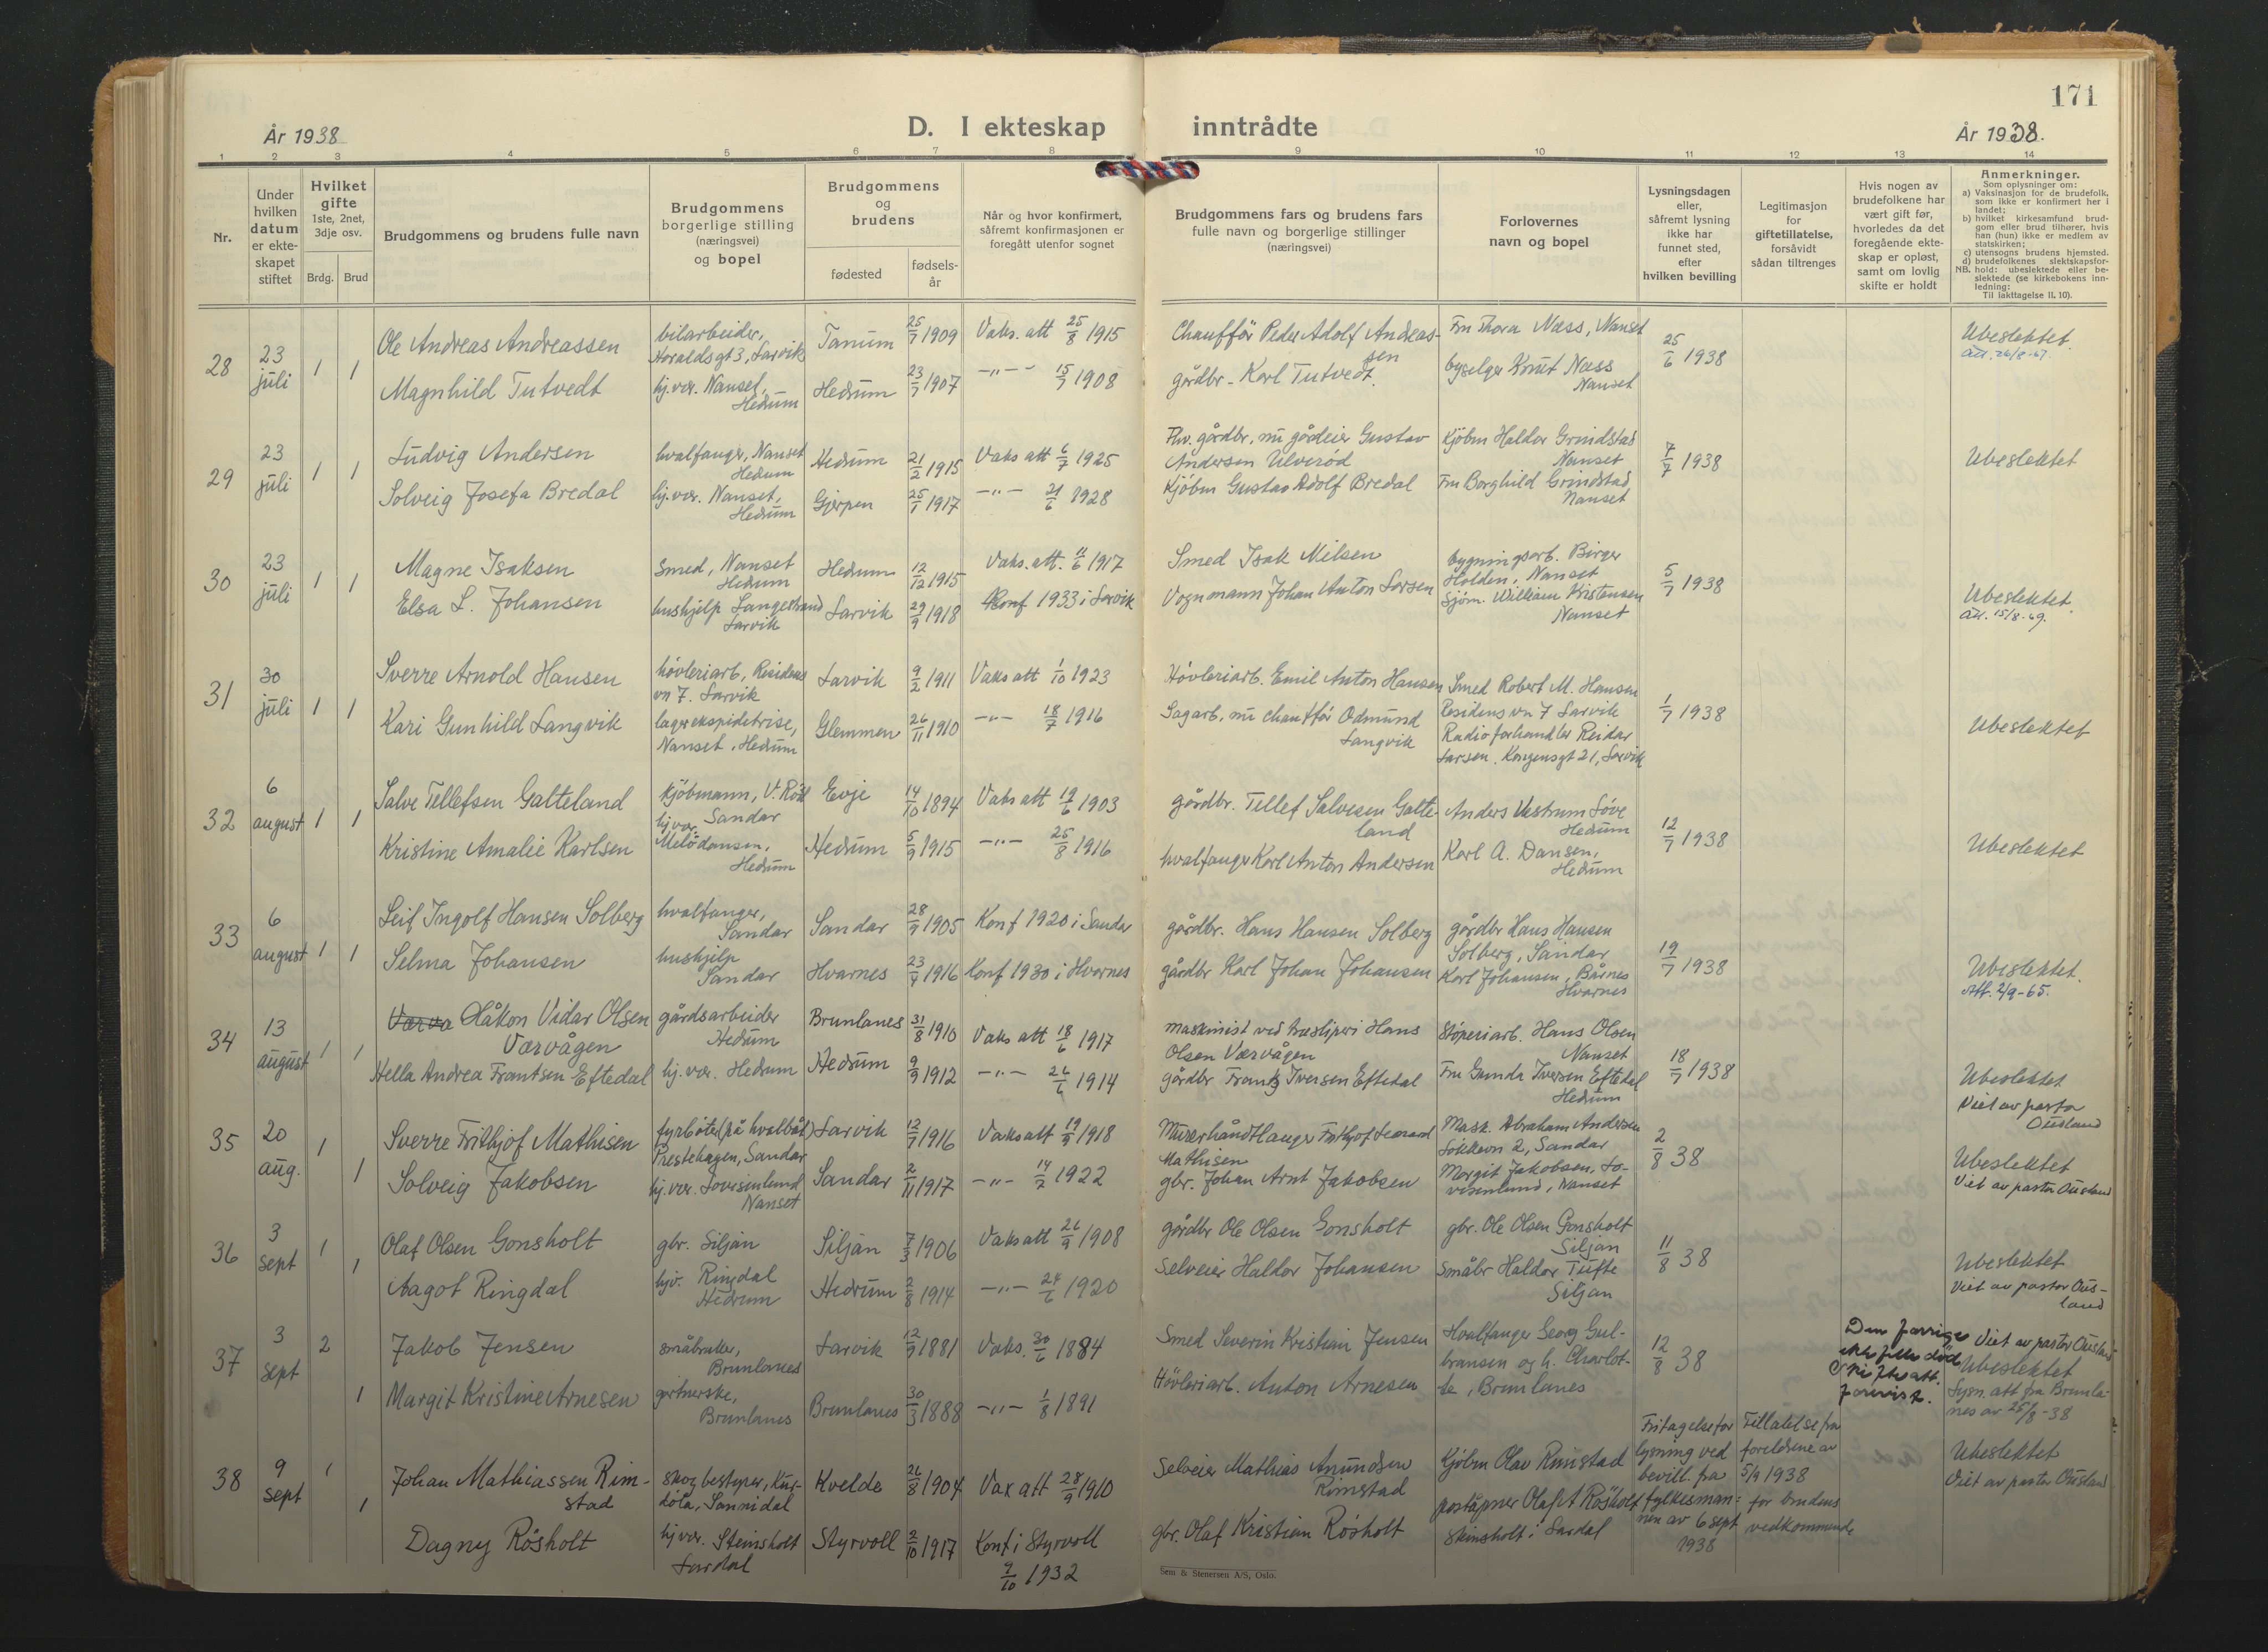 171
År 1938
D. I ekteskap inntrådte
År 1938.
1 2 3 4 5 6 7 8 9 10 11 12 13 14
Nr.
Under
hvilken
datum
er ekte-
skapet
stiftet
Hvilket
gifte
1ste, 2net,
3dje osv.
Brdg. Brud
Brudgommens og brudens fulle navn
Brudgommens
borgerlige stilling
(næringsvei)
og bopel
Brudgommens
og
brudens
fødested
fødsels-
år
Når og hvor konfirmert,
såfremt konfirmasjonen er
foregått utenfor sognet
Brudgommens fars og brudens fars
fulle navn og borgerlige stillinger
(næringsvei)
Forlovernes
navn og bopel
Lysningsdagen
eller,
såfremt lysning
ikke har
funnet sted,
efter
hvilken bevilling
Legitimasjon
for
giftetillatelse,
forsåvidt
sådan tiltrenges
Hvis nogen av
brudefolkene har
vært gift før,
hvorledes da det
foregående ekte-
skap er opløst,
samt om lovlig
skifte er holdt
Anmerkninger.
Som oplysninger om:
a) Vaksinasjon for de brudefolk,
som ikke er konfirmert her i
landet;
b) hvilket kirkesamfund brud-
gom eller brud tilhører, hvis
han (hun) ikke er medlem av
statskirken;
c) utensogns brudens hjemsted.
d) brudefolkenes slektskapsfor-
NB. hold: ubeslektede eller be-
slektede (se kirkebokens inn-
ledning:
Til iakttagelse II, 10).
28
23
juli
1 1
Ole Andreas Andreassen
Magnhild Tutvedt
bilarbeider,
Haraldsgt 3, Larvik
hj.vær. Nanset,
Hedrum
Tanum
Hedrum
25/7 1909
23/7 1907
Vaks. att 25/8 1915
-"- 15/7 1908
Chauffør Peder Adolf Andreas-
sen
gårdbr. Karl Tutvedt.
Fru Thora Næss, Nanset
byselger Knut Næss
Nanset
25/6 1938
Ubeslektet.
att. 26/8-67.
29
23
juli
1 1
Ludvig Andersen
Solveig Josefa Bredal
hvalfanger, Nanset
Hedrum
hj.vær. Nanset,
Hedrum
Hedrum
Gjerpen
21/2 1915
25/1 1917
Vaks att 6/7 1925
-"- 21/6 1928
Fhv. gårdbr, nu gårdeier Gustav
Andersen Ulverød
Kjøbm Gustav Adolf Bredal
Kjøbm Haldor Grindstad
Nanset
Fru Borghild Grindstad
Nanset
7/7 1938
Ubeslektet
30
23
juli
1 1
Magne Isaksen
Elsa L. Johansen
Smed, Nanset
Hedrum
hushjelp Langestrand
Larvik
Hedrum
Larvik
12/12 1915
29/9 1918
Vaks. att. 11/6 1917
Konf 1933 i Larvik
Smed Isak Nilsen
Vognmann Johan Anton Larsen
bygningsarb. Birger
Holden, Nanset
Sjøm. William Kristensen
Nanset
5/7 1938
Ubeslektet.
att. 15/8-69.
31
30
juli
1 1
Sverre Arnold Hansen
Kari Gunhild Langvik
høvleriarb, Residens
vn 7. Larvik
lagerekspiditrise,
Nanset, Hedrum
Larvik
Glemmen
9/2 1911
26/11 1910
Vaks att 1/10 1923
-"- 18/7 1916
Høvleriarb. Emil Anton Hansen
Sagarb, nu chauffør Odmund
Langvik
Smed Robert M. Hansen
Residens vn 7 Larvik
Radioforhandler Reidar
Larsen, Kongensgt 21, Larvik
1/7 1938
Ubeslektet
32
6
august
1 1
Salve Tellefsen Galteland
Kristine Amalie Karlsen
Kjøbmann,
Sandar
hj.vær.
Hedrum
Evje
Hedrum
14/10 1894
5/9 1915
Vaks att 19/6 1903
-"- 25/8 1916
gårdbr. Tellef Salvesen Galte-
land
hvalfanger Karl Anton Andersen
Anders Vestrum Løve
Hedrum
Karl A. Dansen,
Hedrum
12/7 1938
Ubeslektet
33
6
august
1 1
Leif Ingolf Hansen Solberg
Selma Johansen
hvalfanger,
Sandar
hushjelp
Sandar
Sandar
Hvarnes
28/9 1905
23/4 1916
Konf 1920 i Sandar
Konf 1930 i Hvarnes
gårdbr. Hans Hansen Solberg
gårdbr Karl Johan Johansen
gårdbr Hans Hansen
Solberg, Sandar
Karl Johansen, Bårnes
Hvarnes
19/7 1938
Ubeslektet.
Att. 2/9-65.
34
13
august
1 1
Håkon Vidar Olsen
Værvågen
Hella Andrea Frantsen Eftedal
gårdsarbeider
Hedrum
hj.vær. Hedrum
Brunlanes
Hedrum
31/8 1910
9/9 1912
Vaks att 18/6 1917
-"- 26/6 1914
Maskinist ved træsliperi Hans
Olsen Værvågen
gårdbr Frants Iversen Eftedal
Støperiarb. Hans Olsen
Nanset
Fru Gunda Iversen Eftedal
Hedrum
18/7 1938
Ubeslektet
Viet av pastor
Ousland
35
20
aug.
1 1
Sverre Frithjof Mathisen
Solveig Jakobsen
fyrbøter (på hvalbåt)
Prestehagen, Sandar
hj.vær. Lovisenlund
Nanset
Larvik
Sandar
12/7 1916
2/11 1917
Vaks att 19/9 1918
-"- 14/7 1922
Murerhåndlanger Frithjof Leonard
Mathisen
gbr. Johan Arnt Jakobsen
Mask. Abraham Andersen
2, Sandar
Margit Jakobsen, Lo-
visenlund, Nanset
2/8 38
Ubeslektet
Viet av pastor Ousland
36
3
sept
1 1
Olaf Olsen Gonsholt
Aagot Ringdal
gbr. Siljan
hjv. Ringdal
Hedrum
Siljan
Hedrum
7/3 1906
2/8 1914
Vaks att 26/9 1908
-"- 24/6 1920
gårdbr Ole Olsen Gonsholt
Selveier Haldor Johansen
gbr. Ole Olsen Gonsholt
Siljan
Småbr Haldor Tufte
Siljan
11/8 38
Ubeslektet
Viet av pastor Ous-
land
37
3
sept
2 1
Jakob Jensen
Margit Kristine Arnesen
småbruker,
Brunlanes
gartnerske,
Brunlanes
Larvik
Brunlanes
12/9 1881
30/3 1888
Vaks. 30/6 1884
-"- 1/8 1891
Smed Severin Kristian Jensen
Høvleriarb. Anton Arnesen
Hvalfanger Georg Gul-
bransen og h. Charlot-
te, Brunlanes
12/8 38
Den forrige
ektefelle død
Skifteatt.
forevist.
Viet av pastor Ousland
Ubeslektet
Lysn. att fra Brunla-
nes av 25/8-38
38
9
sept
1 1
Johan Mathiassen Rim-
stad
Dagny Røsholt
Skogbestyrer,
Sannidal
hj.vær. Steinsholt
Lardal
Kvelde
Styrvoll
26/8 1904
2/10 1917
Vax att 28/9 1910
Konf i Styrvoll
9/10 1932
Selveier Mathias Amundsen
Rimstad
gbr. Olaf Kristian Røsholt
Kjøbm Olav Rimstad
poståpner Olaf A Røsholt
Steinsholt i Lardal
Fritagelse for
lysning ved
bevill. fra
fylkesman-
nen av 6 sept
1938
Tillatelse fra
foreldrene av
5/9 1938
for brudens
vedkommende
Ubeslektet
Viet av pastor Ousland
Sem & Stenersen A/S, Oslo.